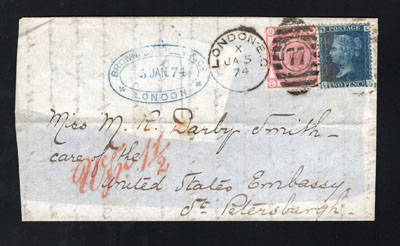 BROWN
5 JAN 74
LONDON
LONDON·E.C
X
JA 5
74
77
POSTAGE
TWO PENCE
Miss M. R. Darby Smith
care of the
United States Embassy
St Petersburgh